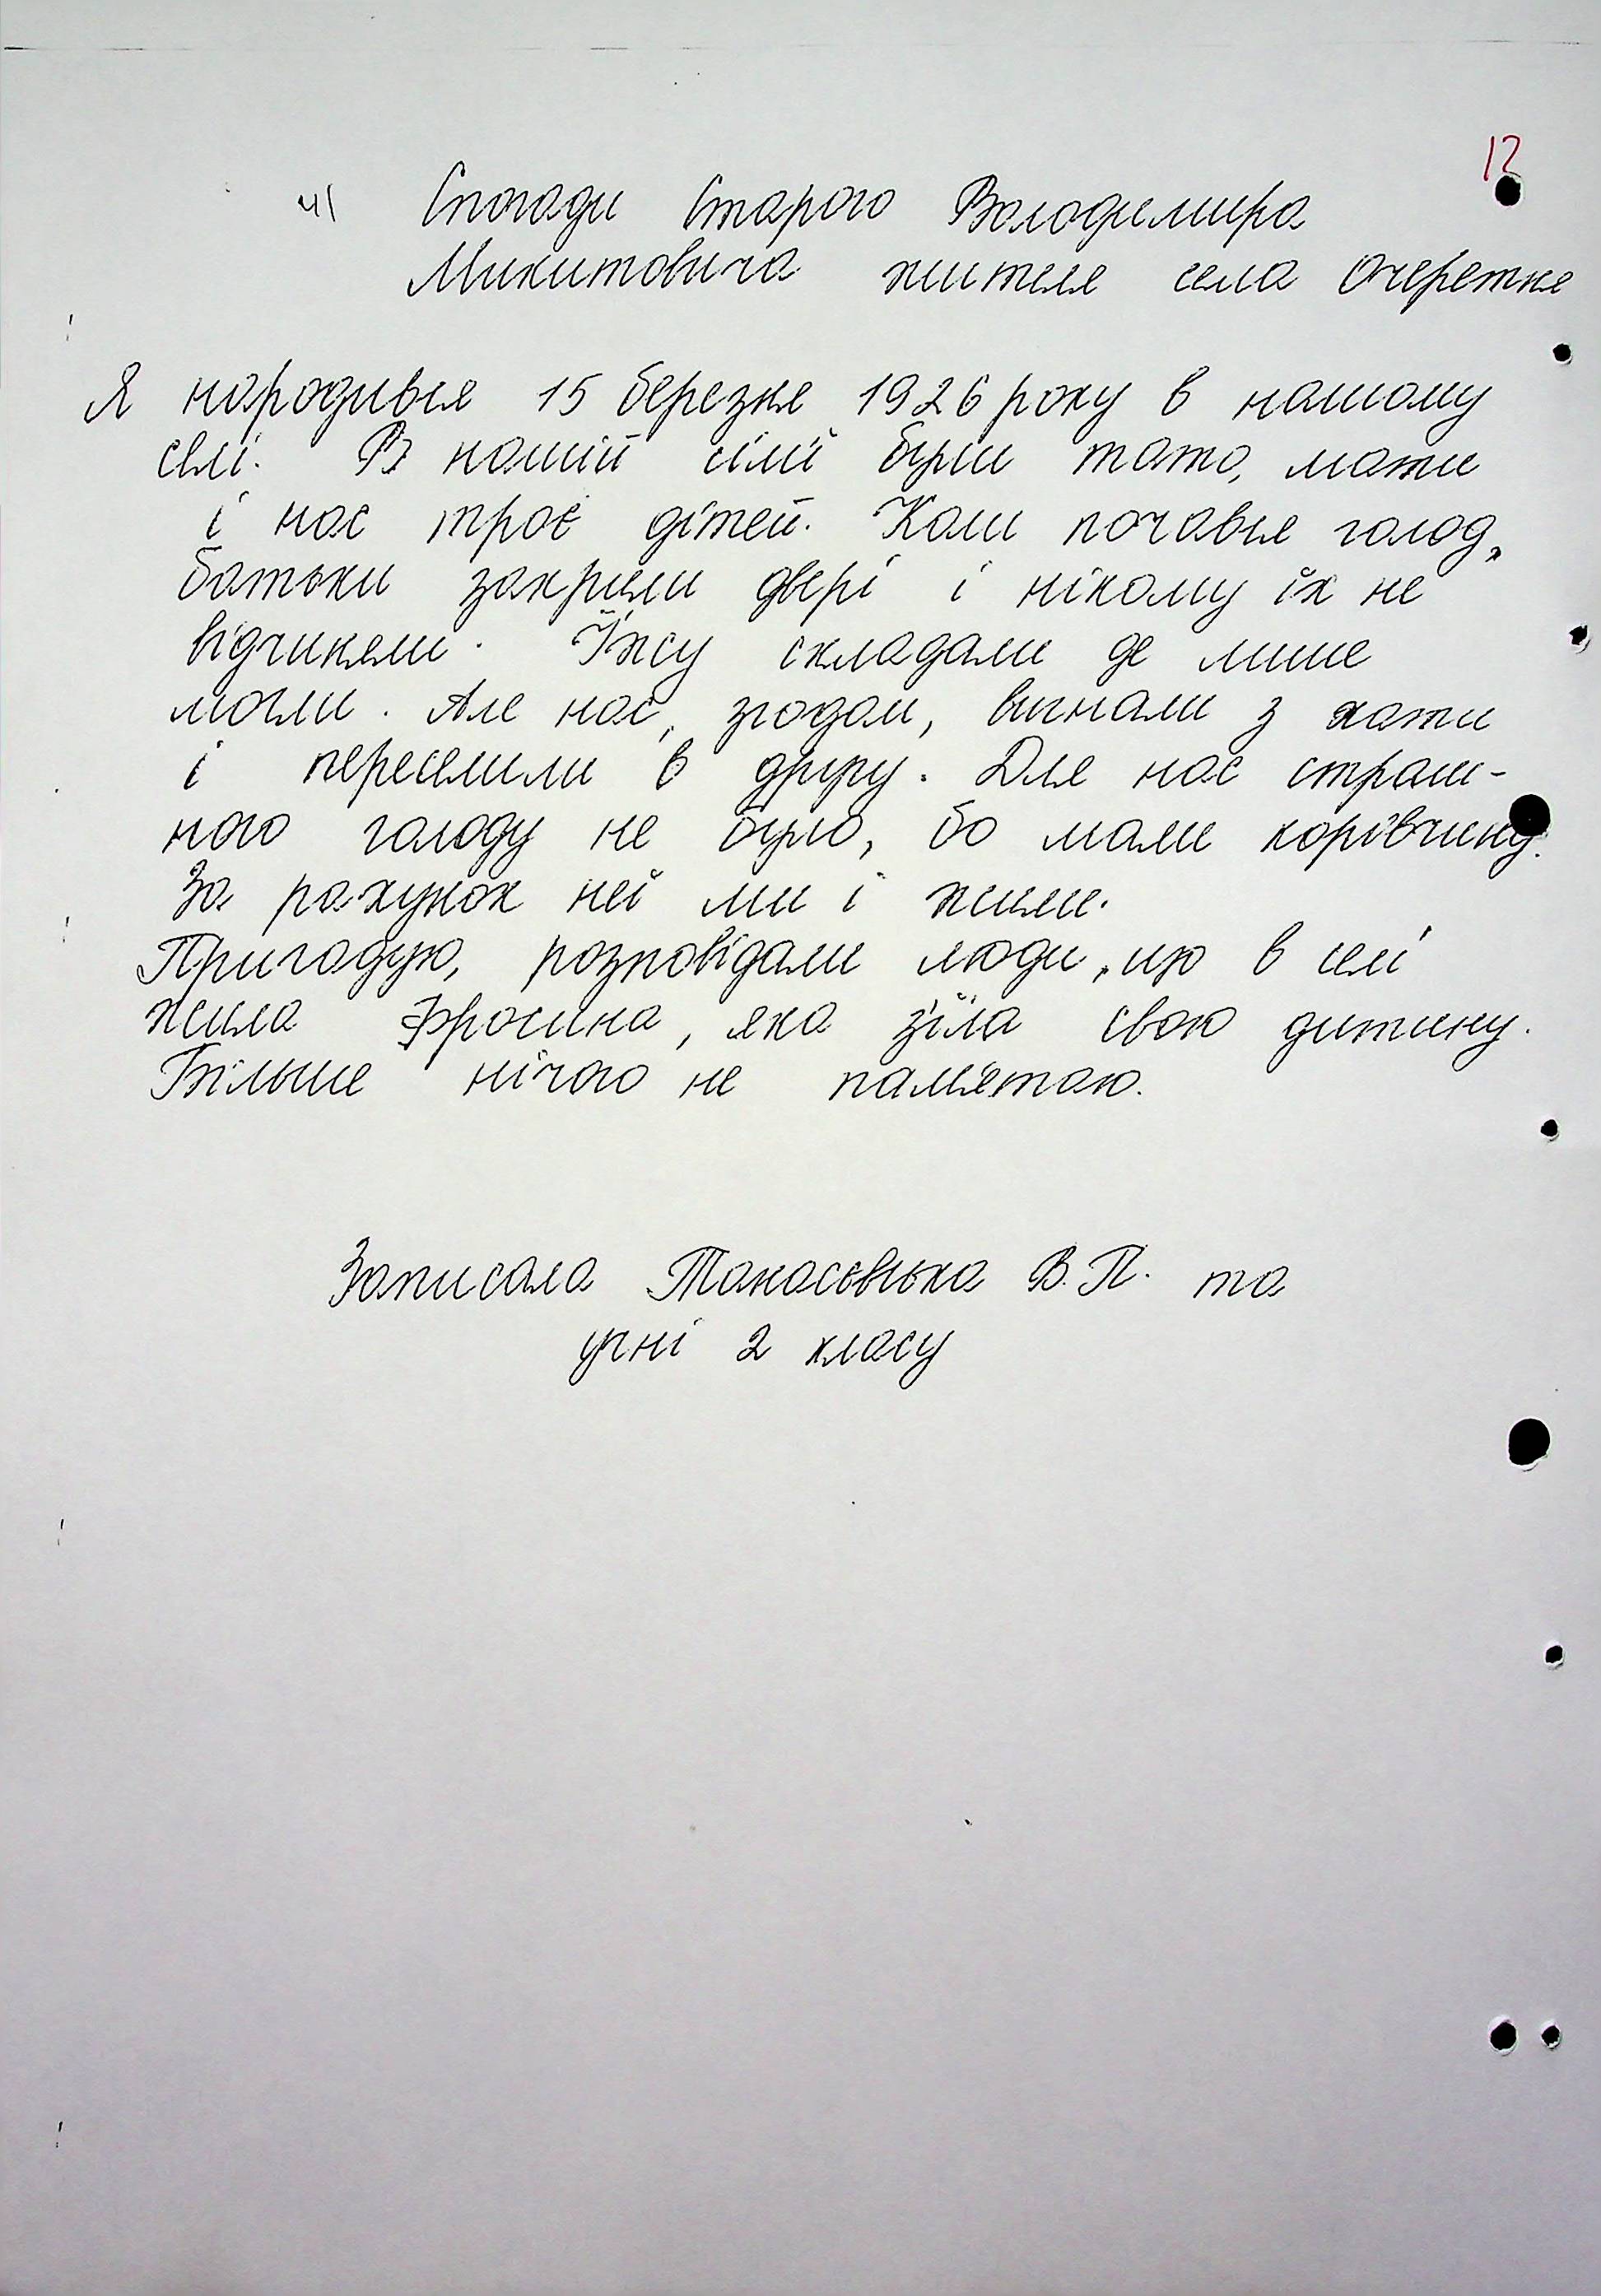 12
41 Спогади Старого Володимира
Микитовича жителя села Очеретня
Я народився 15 березня 1926 року в нашому
селі. В нашій сім'ї були тато, мати
і нас троє дітей. Коли почався голод,
батьки закрили двері і нікому їх не
відчиняли. Їжу складали де лише
могли. Але нас, згодом, вигнали з хати
і переселили в другу. Для нас страш-
ного голоду не було, бо мали корівчину.
За рахунок неї ми і жили.
Пригадую, розповідали люди, що в селі
жила Фросина, яка з'їла свою дитину.
Більше нічого не пам'ятаю.
Записала Танасєвська В.П. та
учні 2 класу